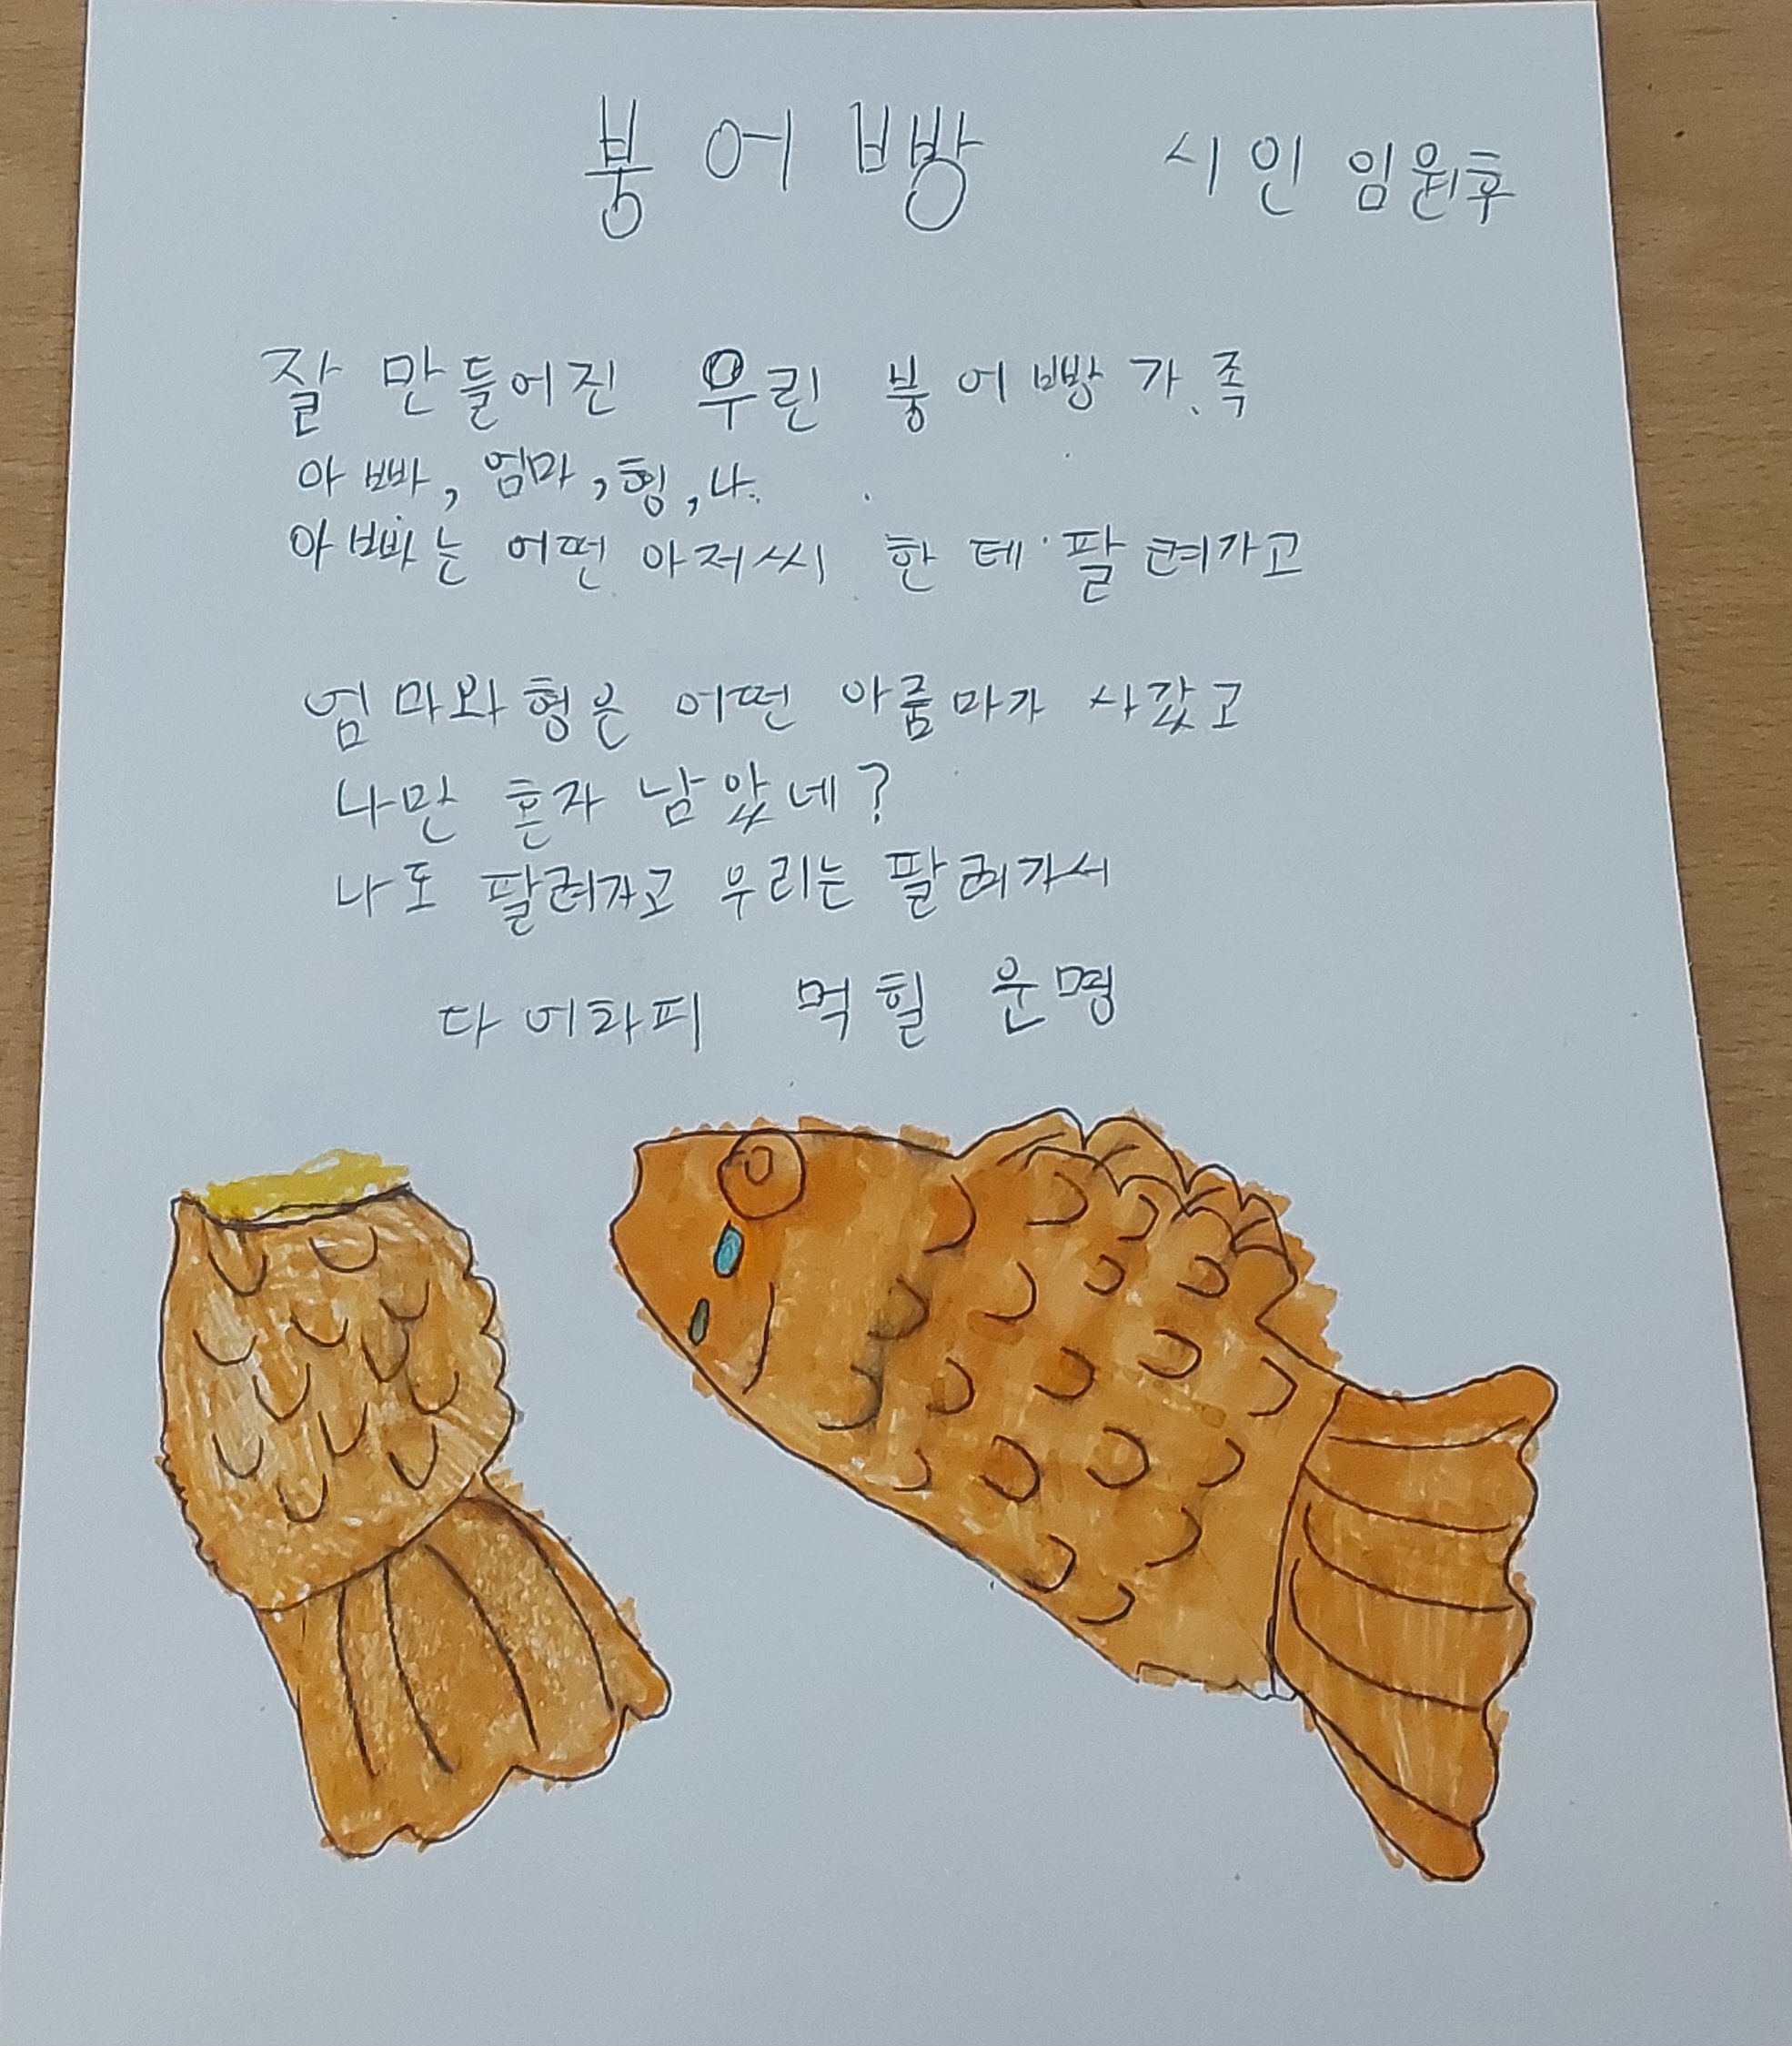 붕어빵 시인 임원후
잘 만들어진 우린 붕어빵 가족
아빠, 엄마, 형, 나.
아빠는 어떤 아저씨 한테 팔려가고
엄마와 형은 어떤 아줌마가 사갔고
나만 혼자 남았네?
나도 팔려가고 우리는 팔려가서
다 어차피 먹힐 운명